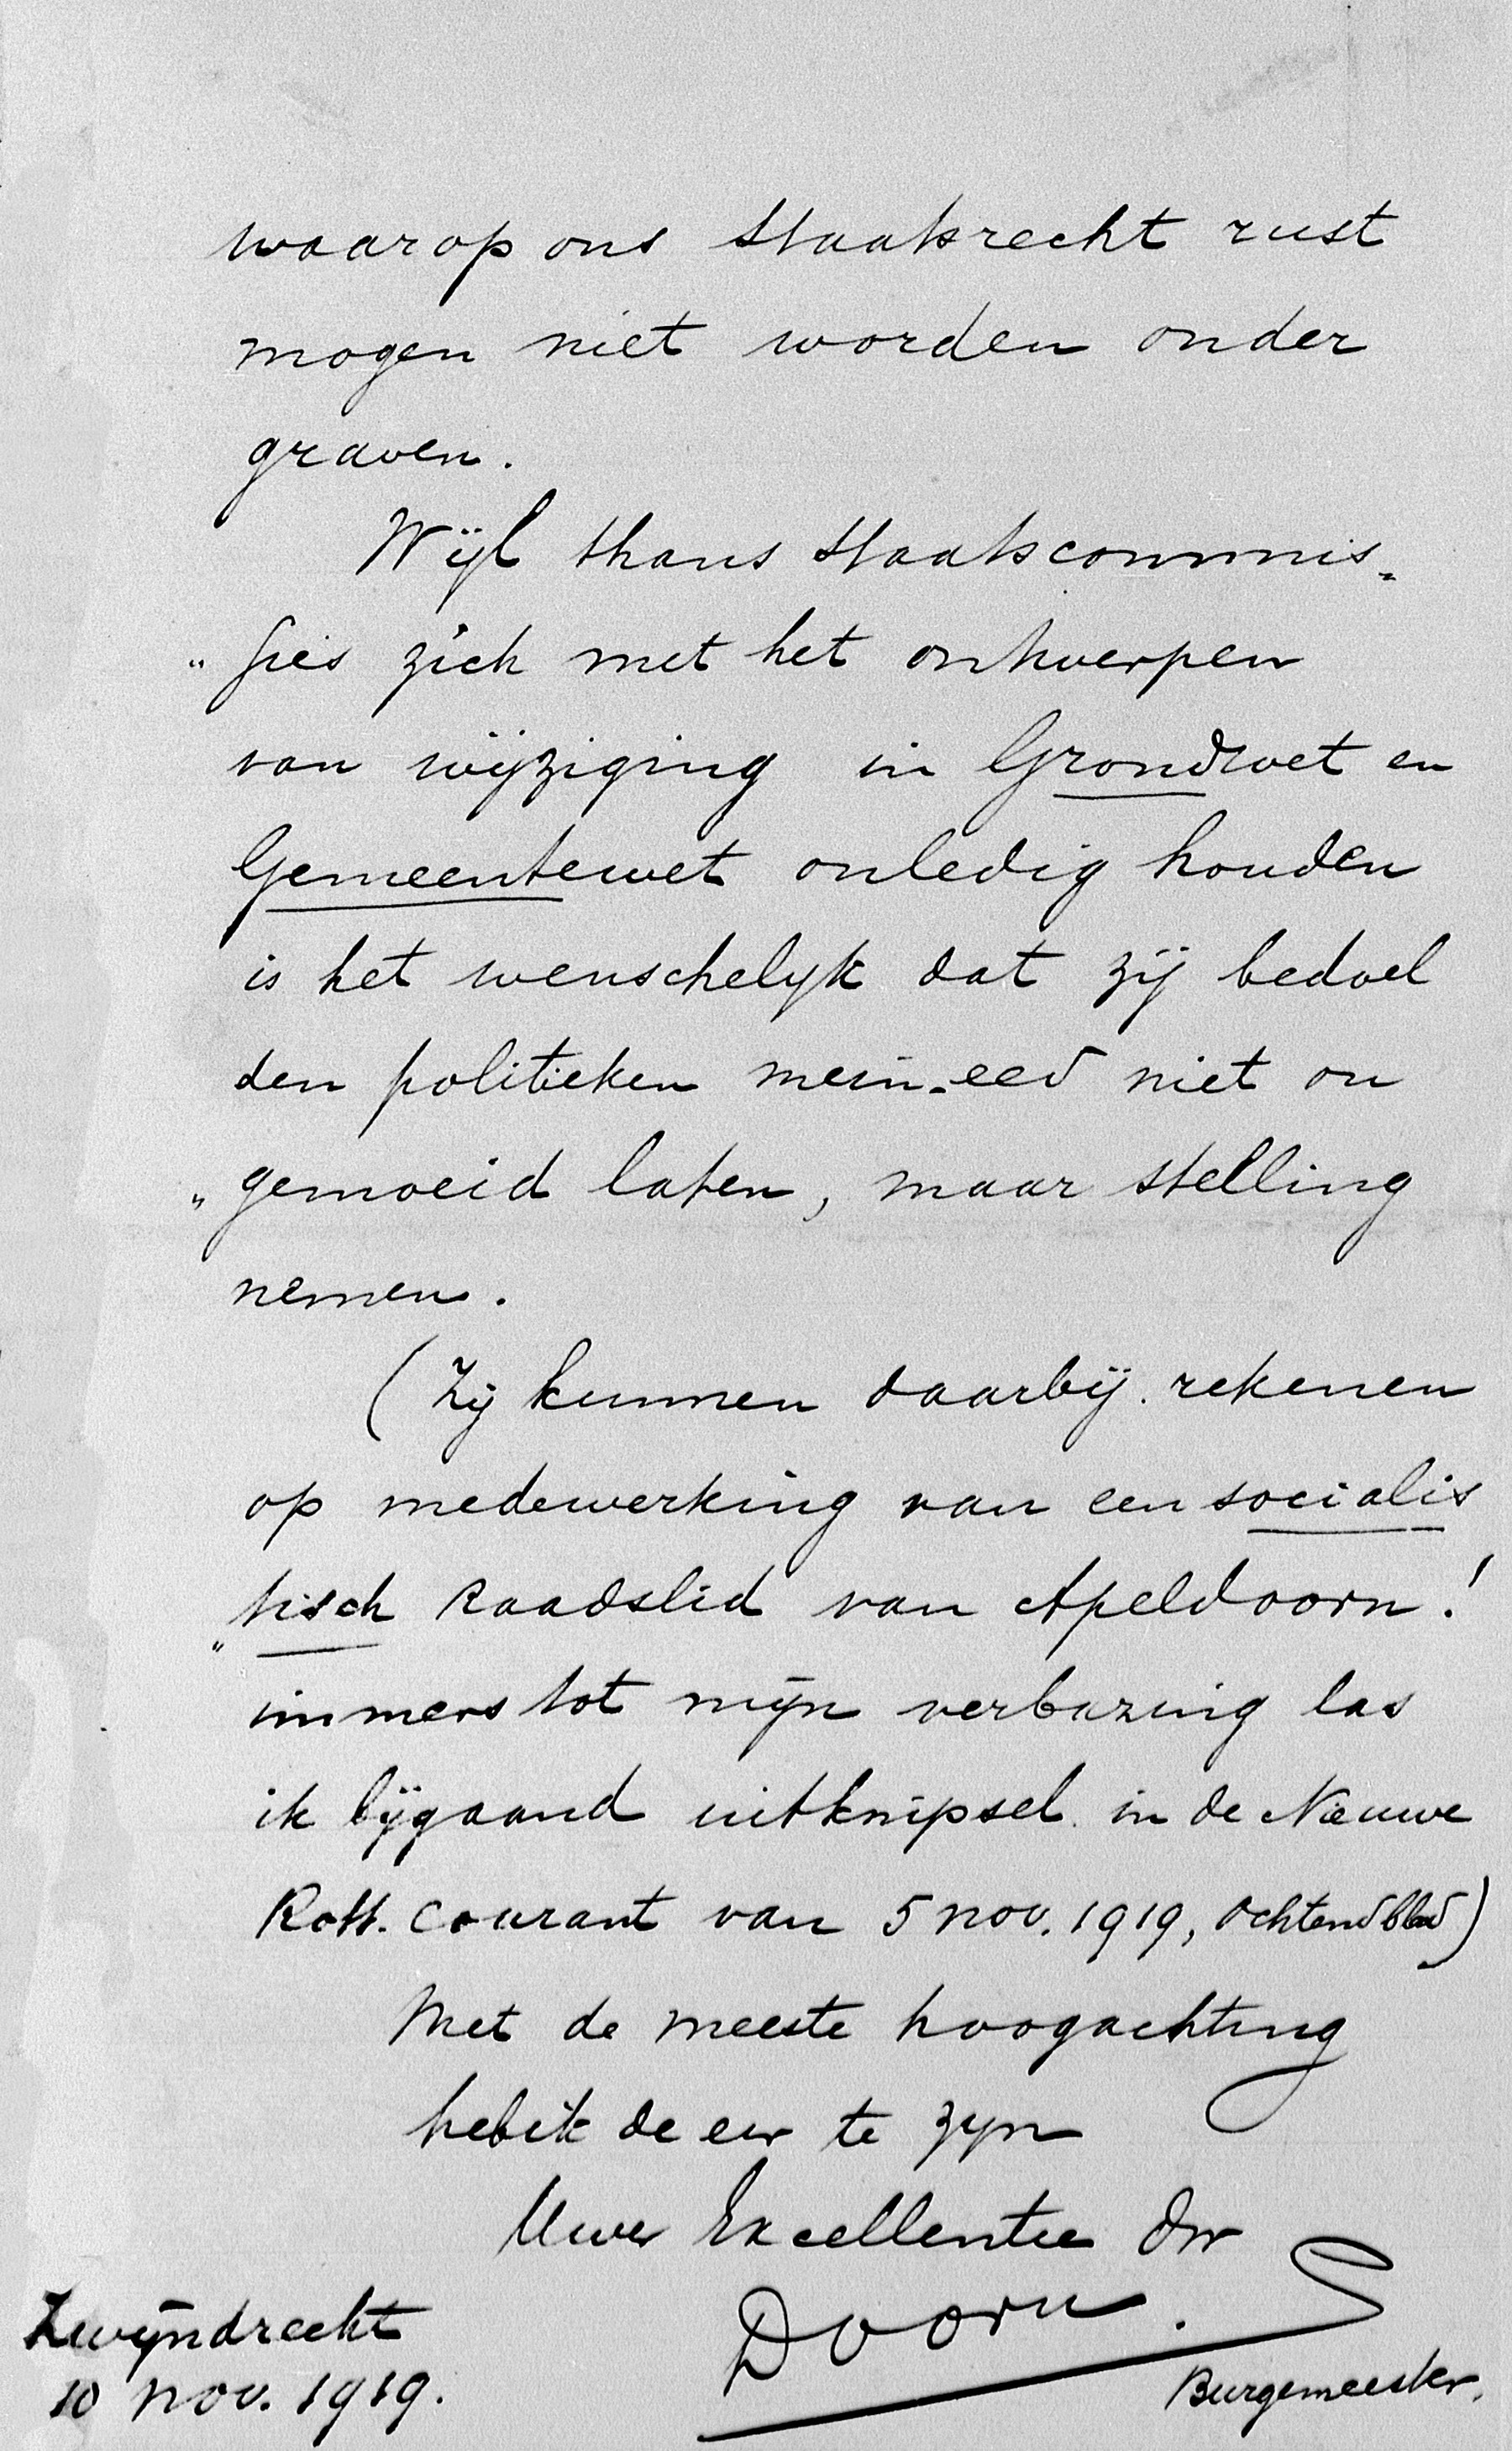 waarop ons staatsrecht rust
mogen niet worden onder
graven.
Wijl thans staatscommis„
„sies zich met het ontwerpen
van wijziging in Grondwet en
Gemeentewet onledig houden
is het wenschelijk dat zij bedoel
den politieken mein-eed niet on
„gemoeid laten, maar stelling
nemen.
(Zij kunnen daarbij rekenen
op medewerking van een socialis
„tisch Raadslid van Apeldoorn!
immers tot mijn verbazing las
ik bijgaand uitknipsel in de Nieuwe
Rott. Courant van 5 nov. 1919, Ochtendblad)
Met de meeste hoogachting
heb ik de eer te zijn
Uwer Excellentie dw
Doorn.
Zwijndrecht
10 nov. 1919.
Burgemeester.